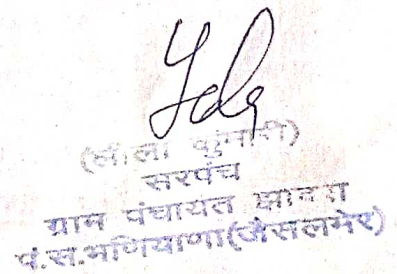 (लीला कुमारी)
सरपंच
ग्राम पंचायत
पं.स.भणियाणा(जैसलमेर)